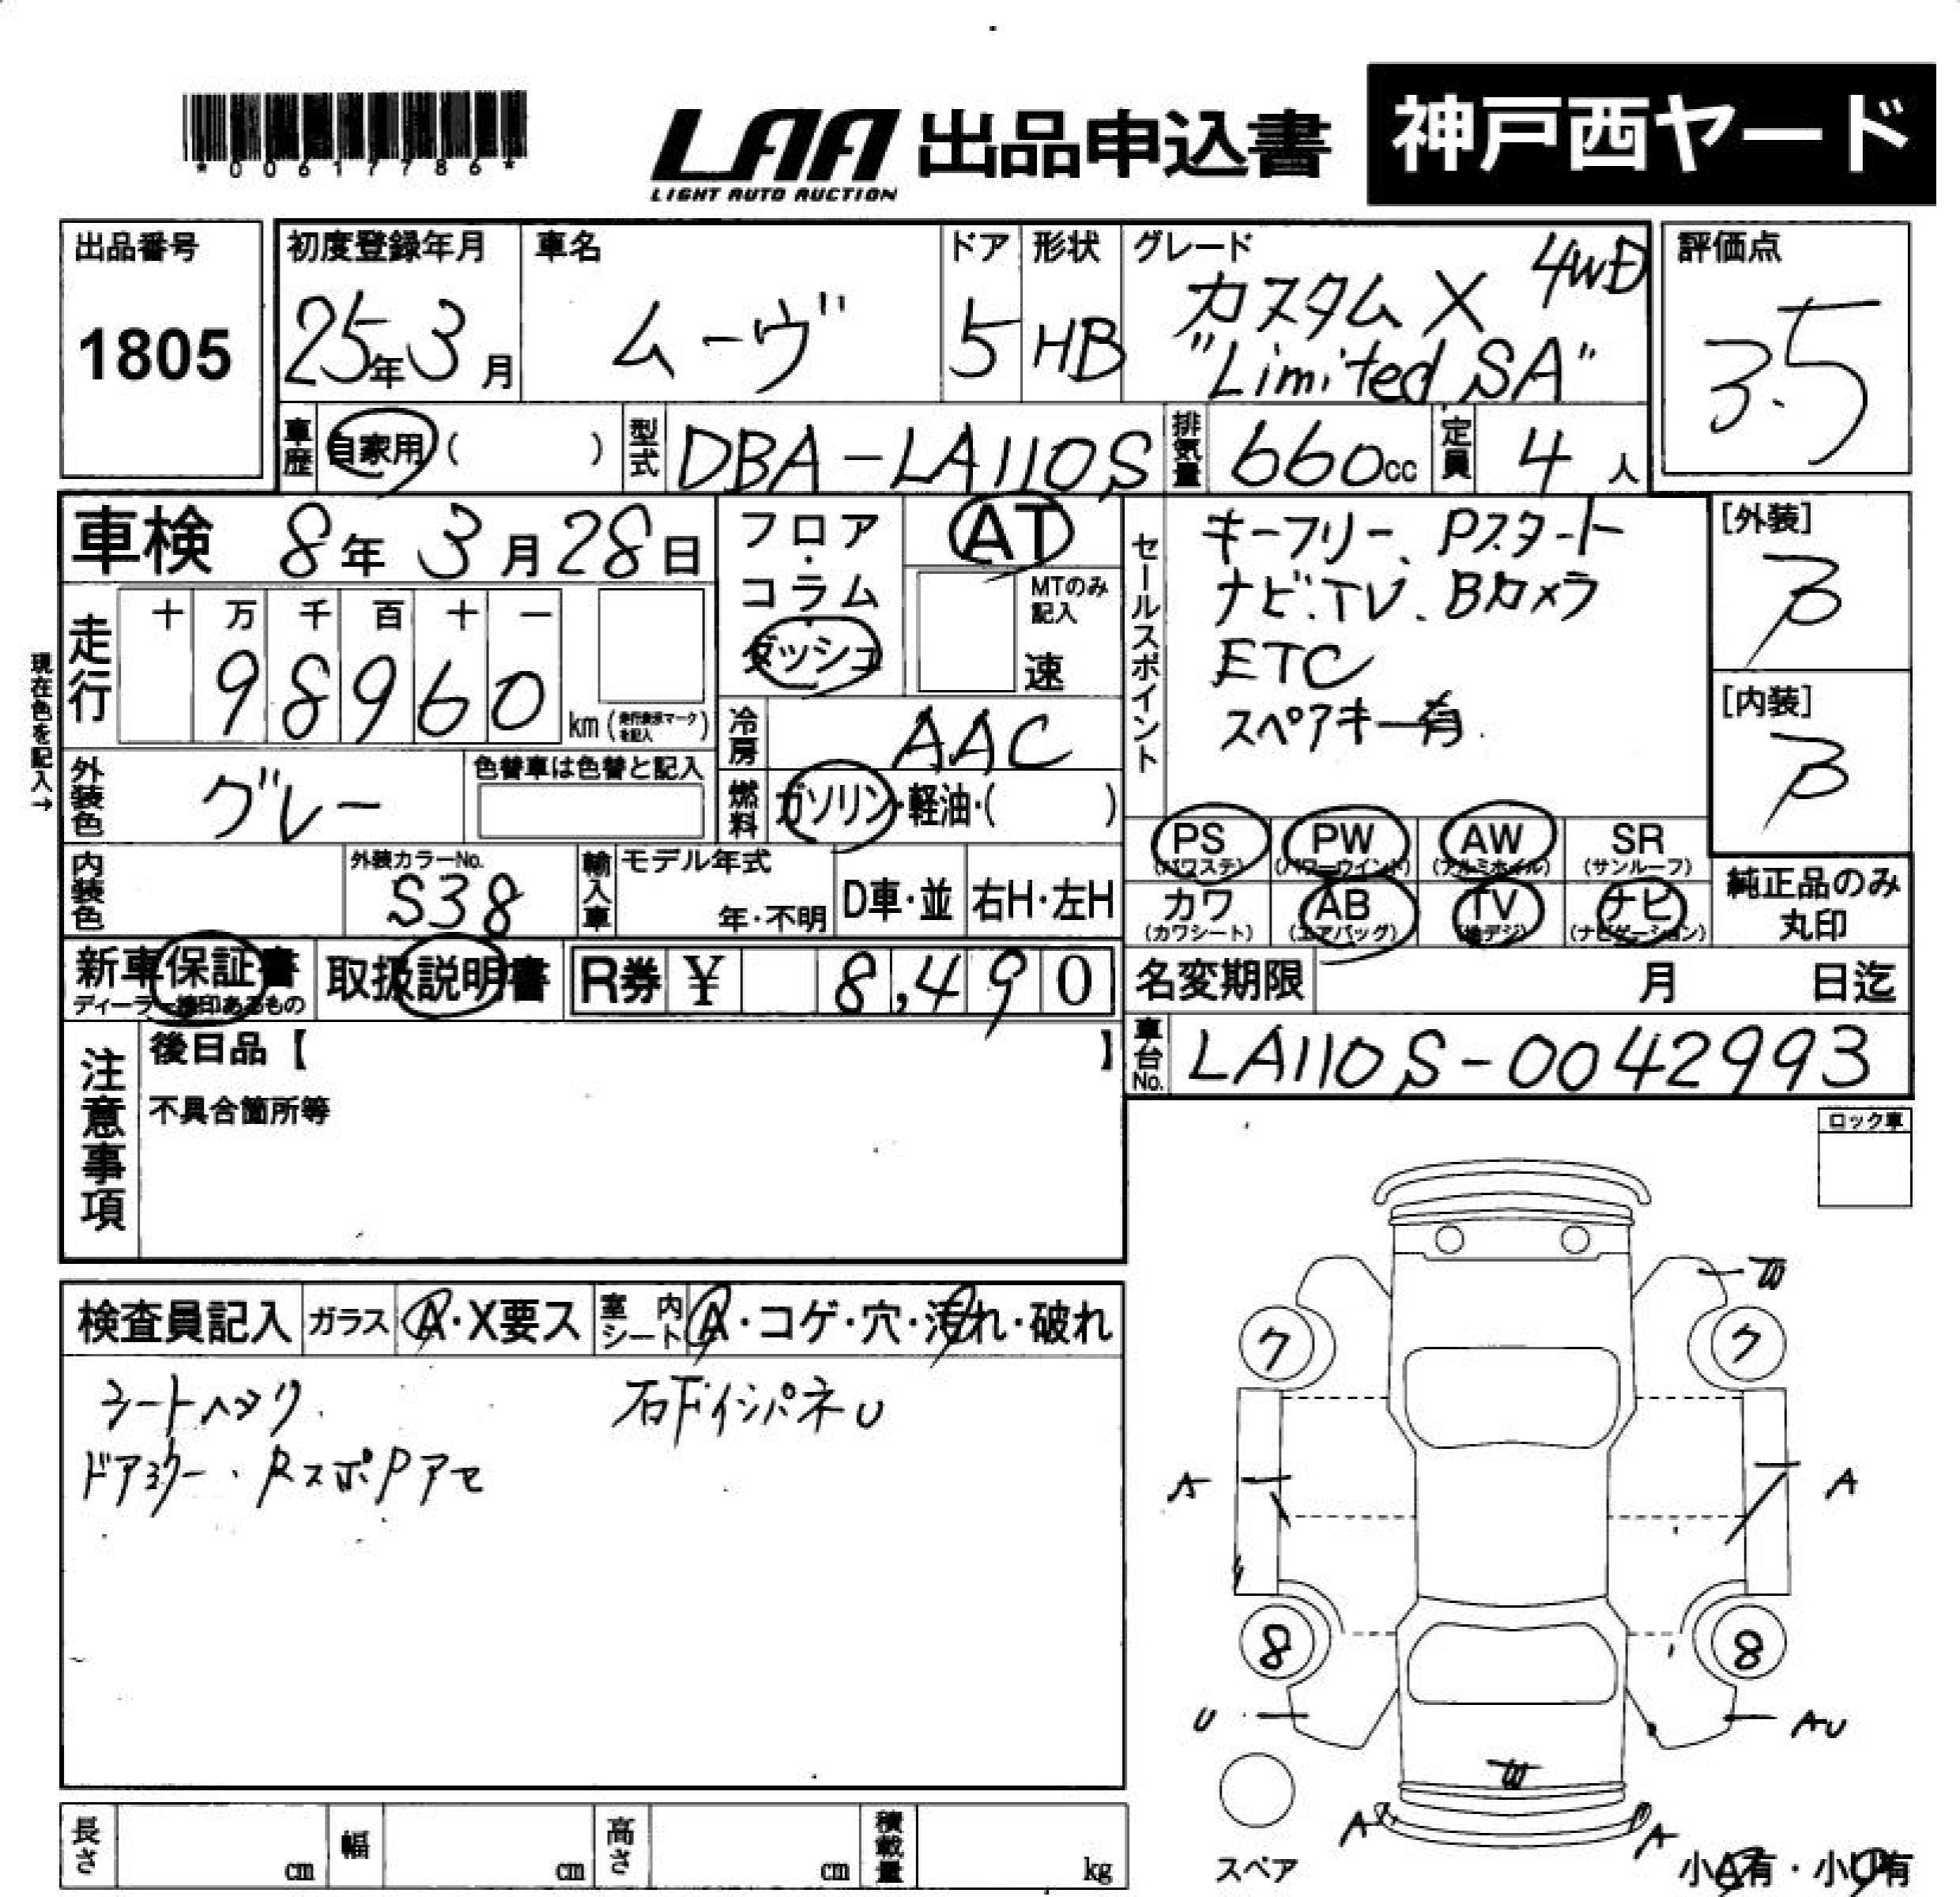 *00617786*
LAA 出品申込書 神戸西ヤード
LIGHT AUTO AUCTION
出品番号 初度登録年月 車名 ドア 形状 グレード 評価点
1805 25年3月 ムーヴ 5 HB カスタムX 4WD 3.5
"Limited SA"
車歴 自家用( ) 型式 DBA-LA110S 排気量 660cc 定員 4人
車検 8年3月28日 フロア・コラム・ダッシュ AT
MTのみ記入 速
セールスポイント
キーフリー、Pスタート
ナビ、TV、Bカメラ
ETC
スペアキー有
[外装] B
[内装] B
現在色を記入→
走行 十万千百十一
98960 km(走行表示マークを記入)
冷房 AAC
外装色 グレー 色替車は色替と記入
燃料 ガソリン・軽油・( )
PS (パワステ) PW (パワーウインド) AW (アルミホイル) SR (サンルーフ)
カワ (カワシート) AB (エアバッグ) TV (地デジ) ナビ (ナビゲーション)
純正品のみ
丸印
内装色 外装カラーNo. S38 輸入車 モデル年式 年・不明 D車・並 右H・左H
新車保証書 取扱説明書 R券 ¥ 8,490
ディーラー捺印あるもの
名変期限 月 日迄
車台No. LA110S-0042993
注意事項
後日品【 】
不具合箇所等
ロック車
検査員記入 ガラス A・X要ス 室内シート A・コゲ・穴・汚れ・破れ
シートハック 右FインパネU
アセ
W
7 7
A A
8 8
U AU
W
A A
スペア
小A有・小U有
長さ cm 幅 cm 高さ cm 積載量 kg